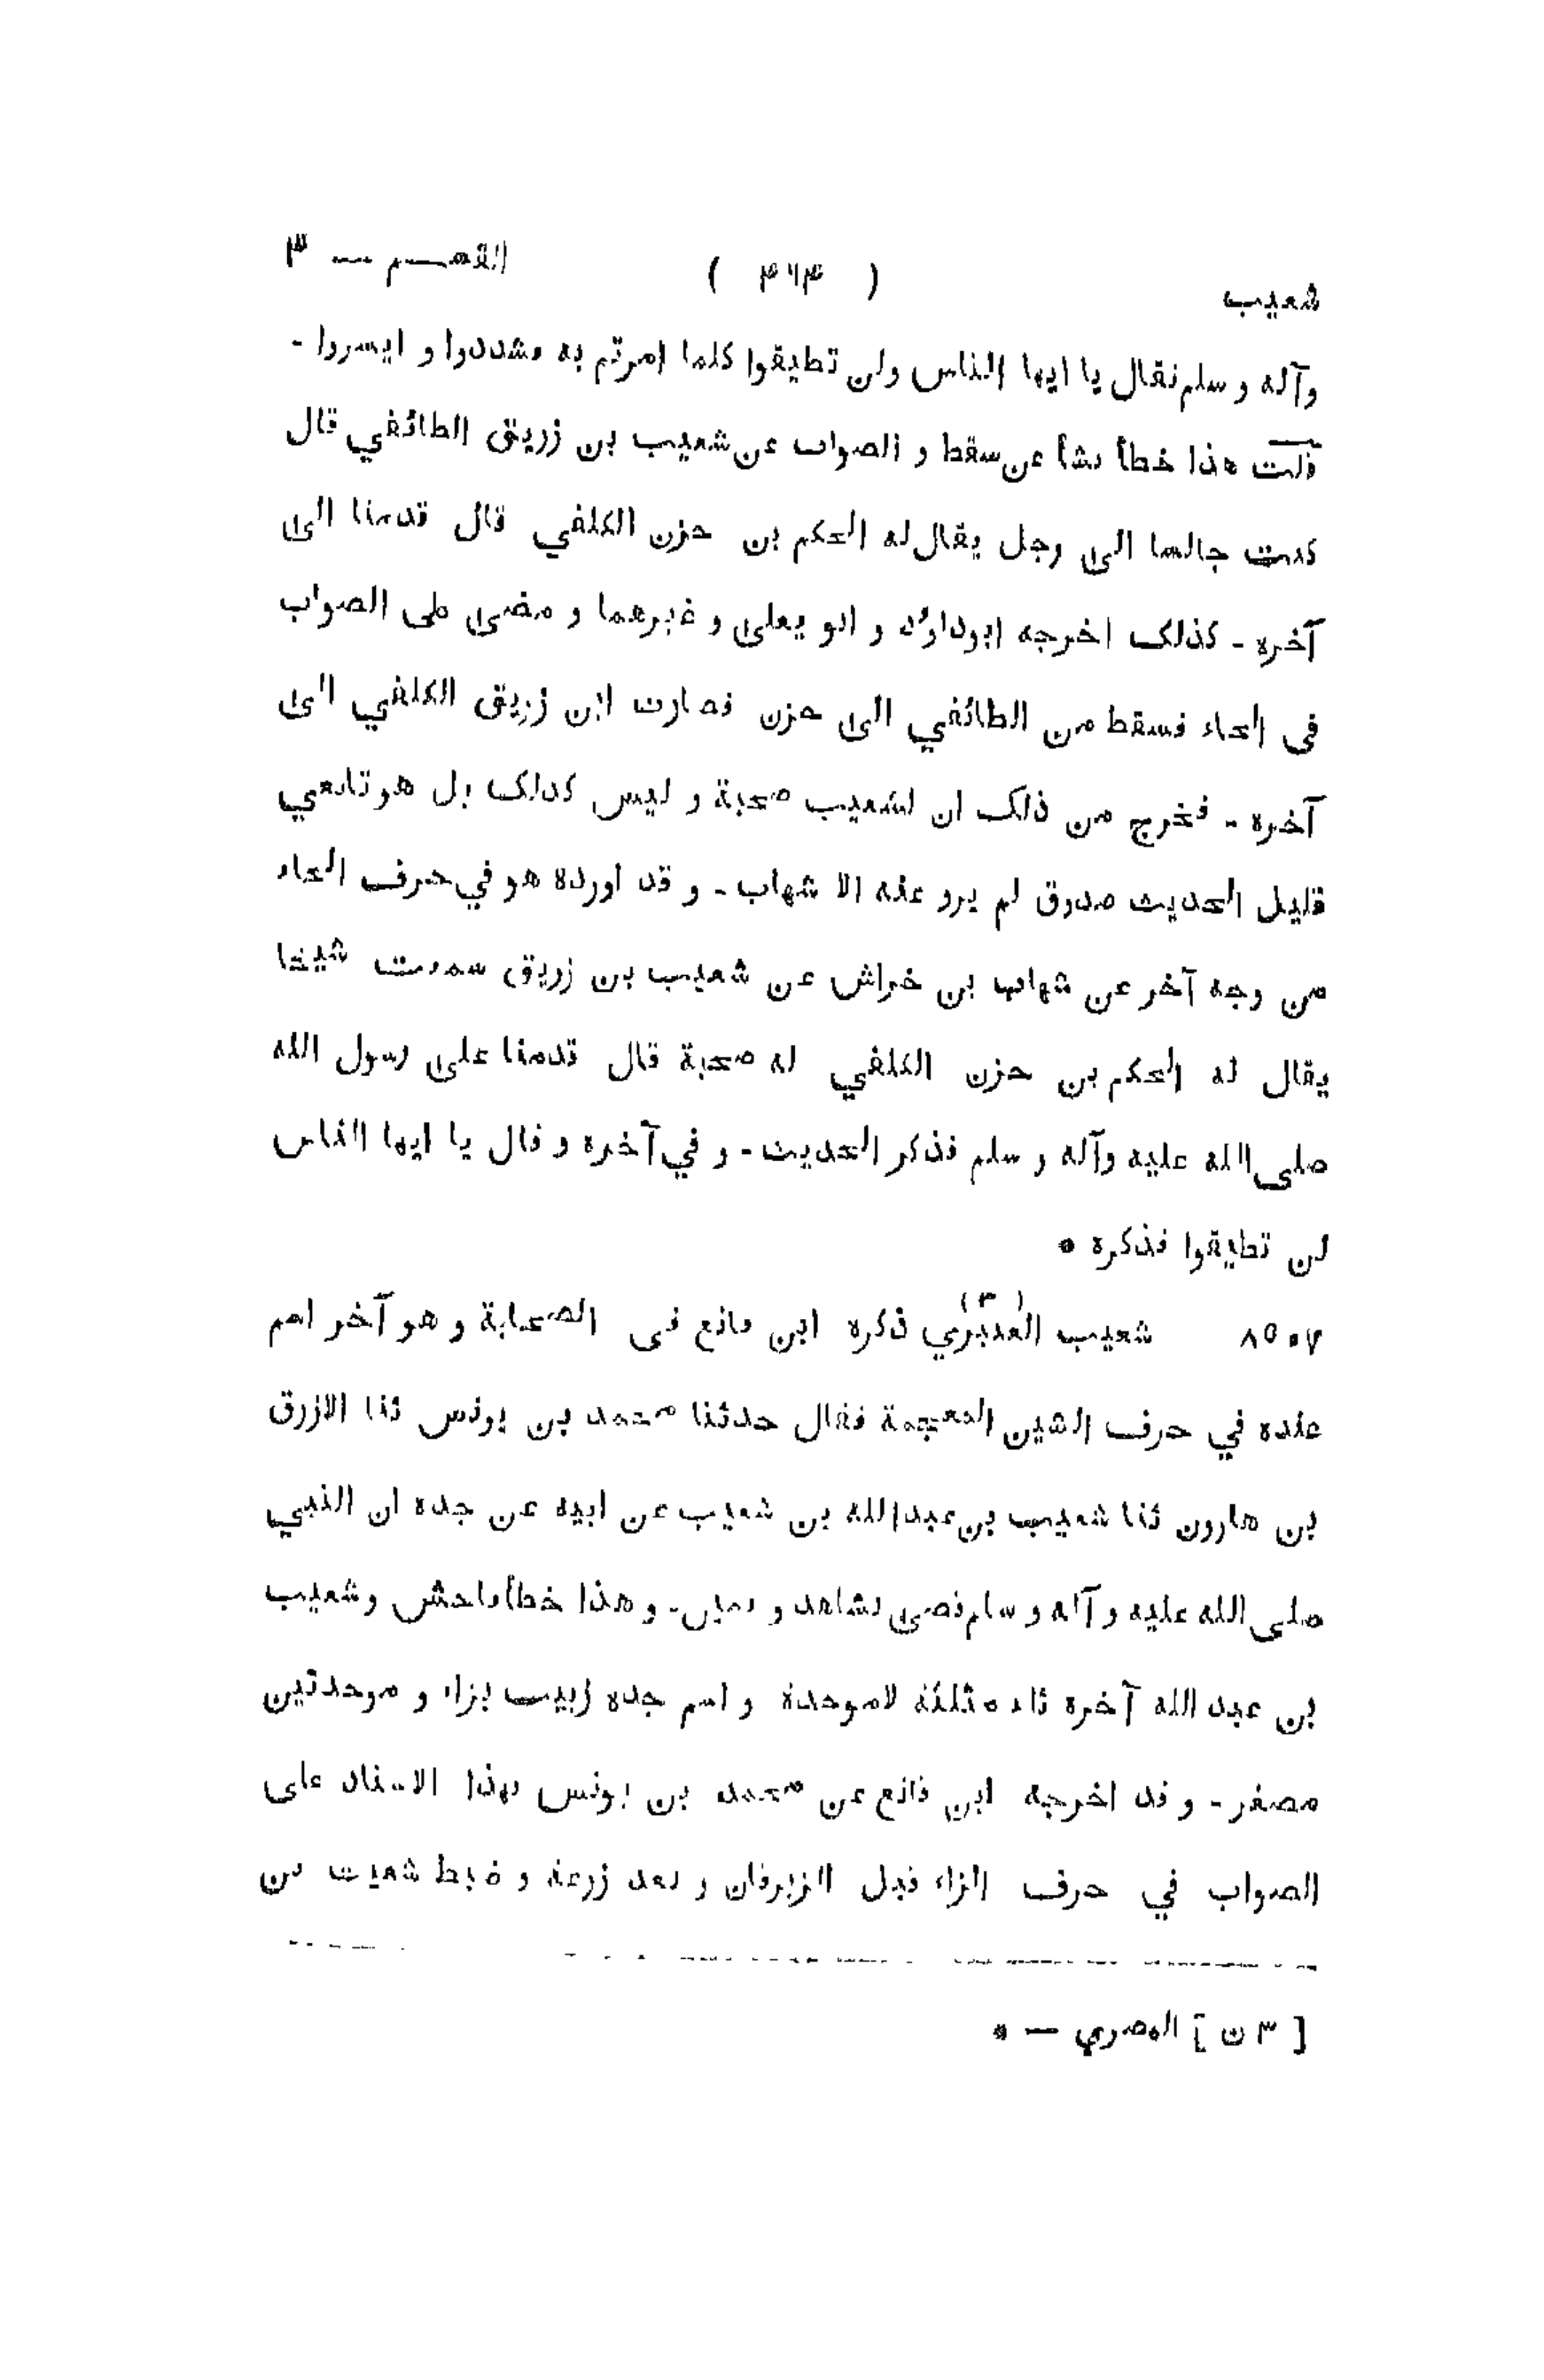 شعيب ( ٤٦٤ ) القسم — ٣
وآله و سلم فقال يا ايها الناس ولن تطيقوا كلما امرتم به فشددوا و ايسروا -
قلت هذا خطأ نشأ عن سقط و الصواب عن شعيب بن زريق الطائفي قال
كنت جالسا الى رجل يقال له الحكم بن حزن الكلفي قال قدمنا الى
آخره - كذلك اخرجه ابوداؤد و ابو يعلى و غيرهما و مضى على الصواب
فى الحاء فسقط من الطائفي الى حزن فصارت ابن زريق الكلفي الى
آخره - فخرج من ذلك ان لشعيب صحبة و ليس كذلك بل هو تابعي
قليل الحديث صدوق لم يرو عنه الا شهاب - و قد اورده هو في حرف الحاء
من وجه آخر عن شهاب بن خراش عن شعيب بن زريق سمعت شيخا
يقال له الحكم بن حزن الكلفي له صحبة قال قدمنا على رسول الله
صلى الله عليه وآله و سلم فذكر الحديث - و في آخره و قال يا ايها الناس
لن تطيقوا فذكره *
٨٥٠٧ شعيب العنبري (٣) ذكره ابن قانع فى الصحابة و هو آخر اسم
عنده في حرف الشين المعجمة فقال حدثنا محمد بن يونس ثنا الازرق
بن هارون ثنا شعيب بن عبد الله بن شعيب عن ابيه عن جده ان النبي
صلى الله عليه و آله و سلم قضى بشاهد و يمين - و هذا خطأ فاحش و شعيب
بن عبد الله آخره ثاء مثلثة لا موحدة و اسم جده زبيب بزاء و موحدتين
مصغر - و قد اخرجه ابن قانع عن محمد بن يونس بهذا الاسناد على
الصواب في حرف الزاء قبل الزبرقان و بعد زرعة و ضبط شعيث بن
[ ٣ ن ] المصري — *